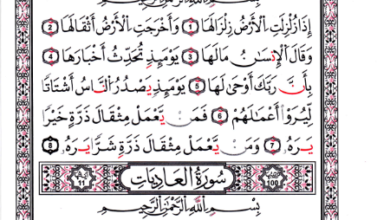 إِذَا زُلْزِلَتِ الْأَرْضُ زِلْزَالَهَا ١ وَأَخْرَجَتِ الْأَرْضُ أَثْقَالَهَا ٢
وَقَالَ الْإِنسَٰنُ مَا لَهَا ٣ يَوْمَئِذٍ تُحَدِّثُ أَخْبَارَهَا ٤
بِأَنَّ رَبَّكَ أَوْحَىٰ لَهَا ٥ يَوْمَئِذٍ يَصْدُرُ النَّاسُ أَشْتَاتًا
لِّيُرَوْا أَعْمَٰلَهُمْ ٦ فَمَن يَعْمَلْ مِثْقَالَ ذَرَّةٍ خَيْرًا
يَرَهُ ٧ وَمَن يَعْمَلْ مِثْقَالَ ذَرَّةٍ شَرًّا يَرَهُ ٨
100 سُورَةُ الْعَادِيَاتِ 11
بِسْمِ اللَّهِ الرَّحْمَٰنِ الرَّحِيمِ